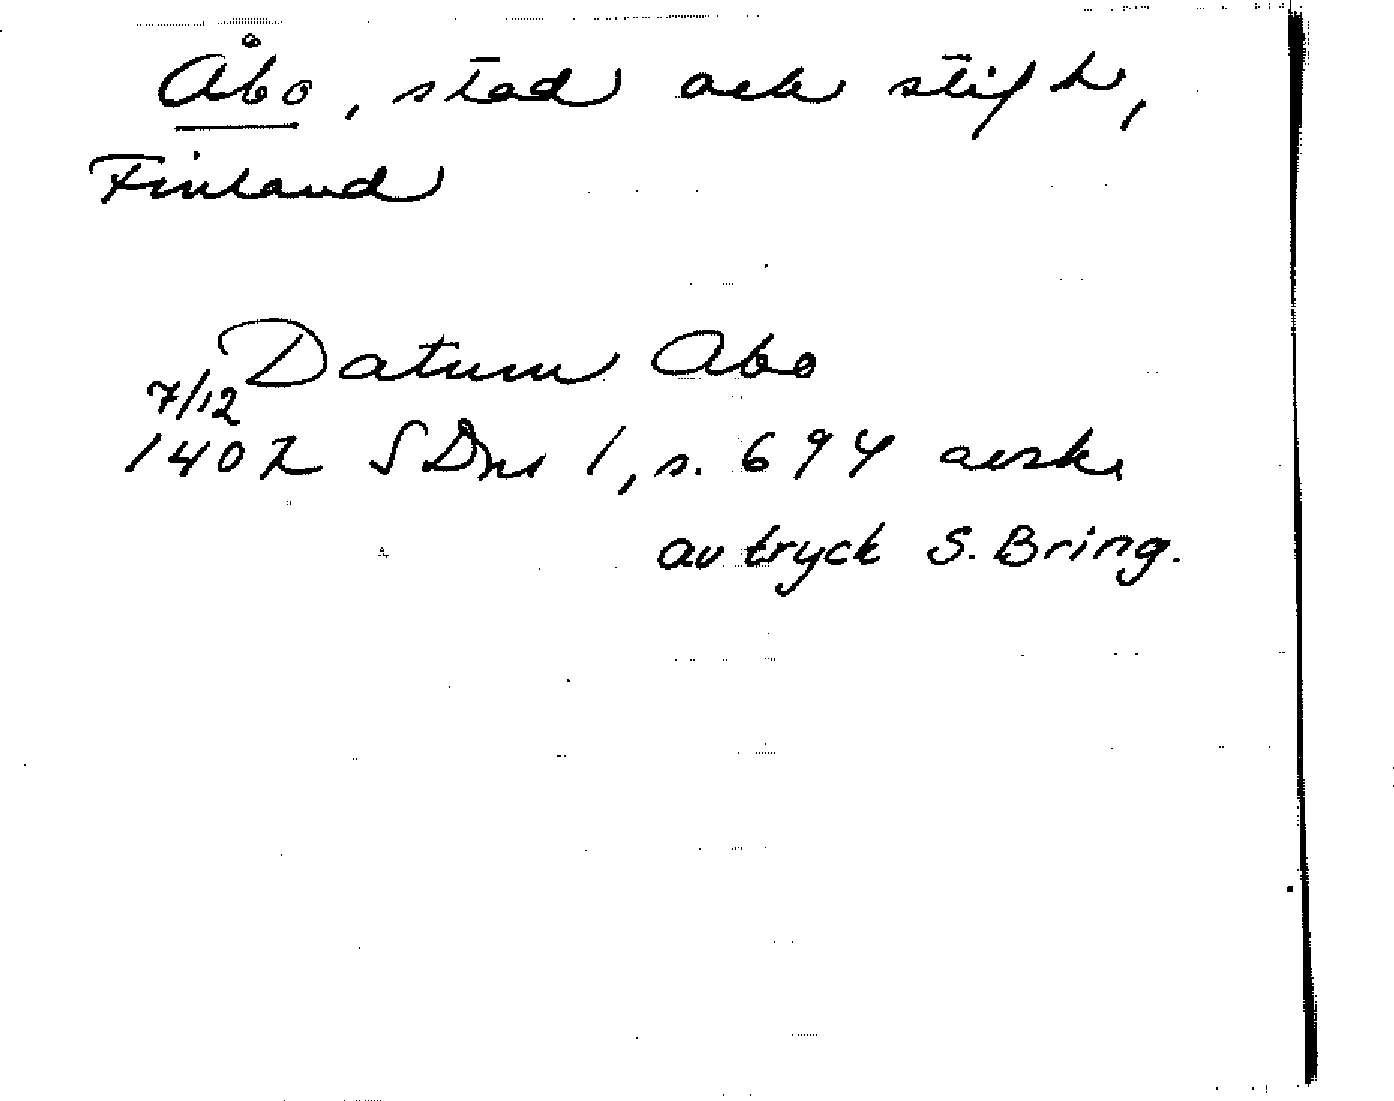 Åbo, stad och stift,
Finland
Datum Abo
7/12
1407 SDns 1, s. 694 avskr
av tryck S. Bring.